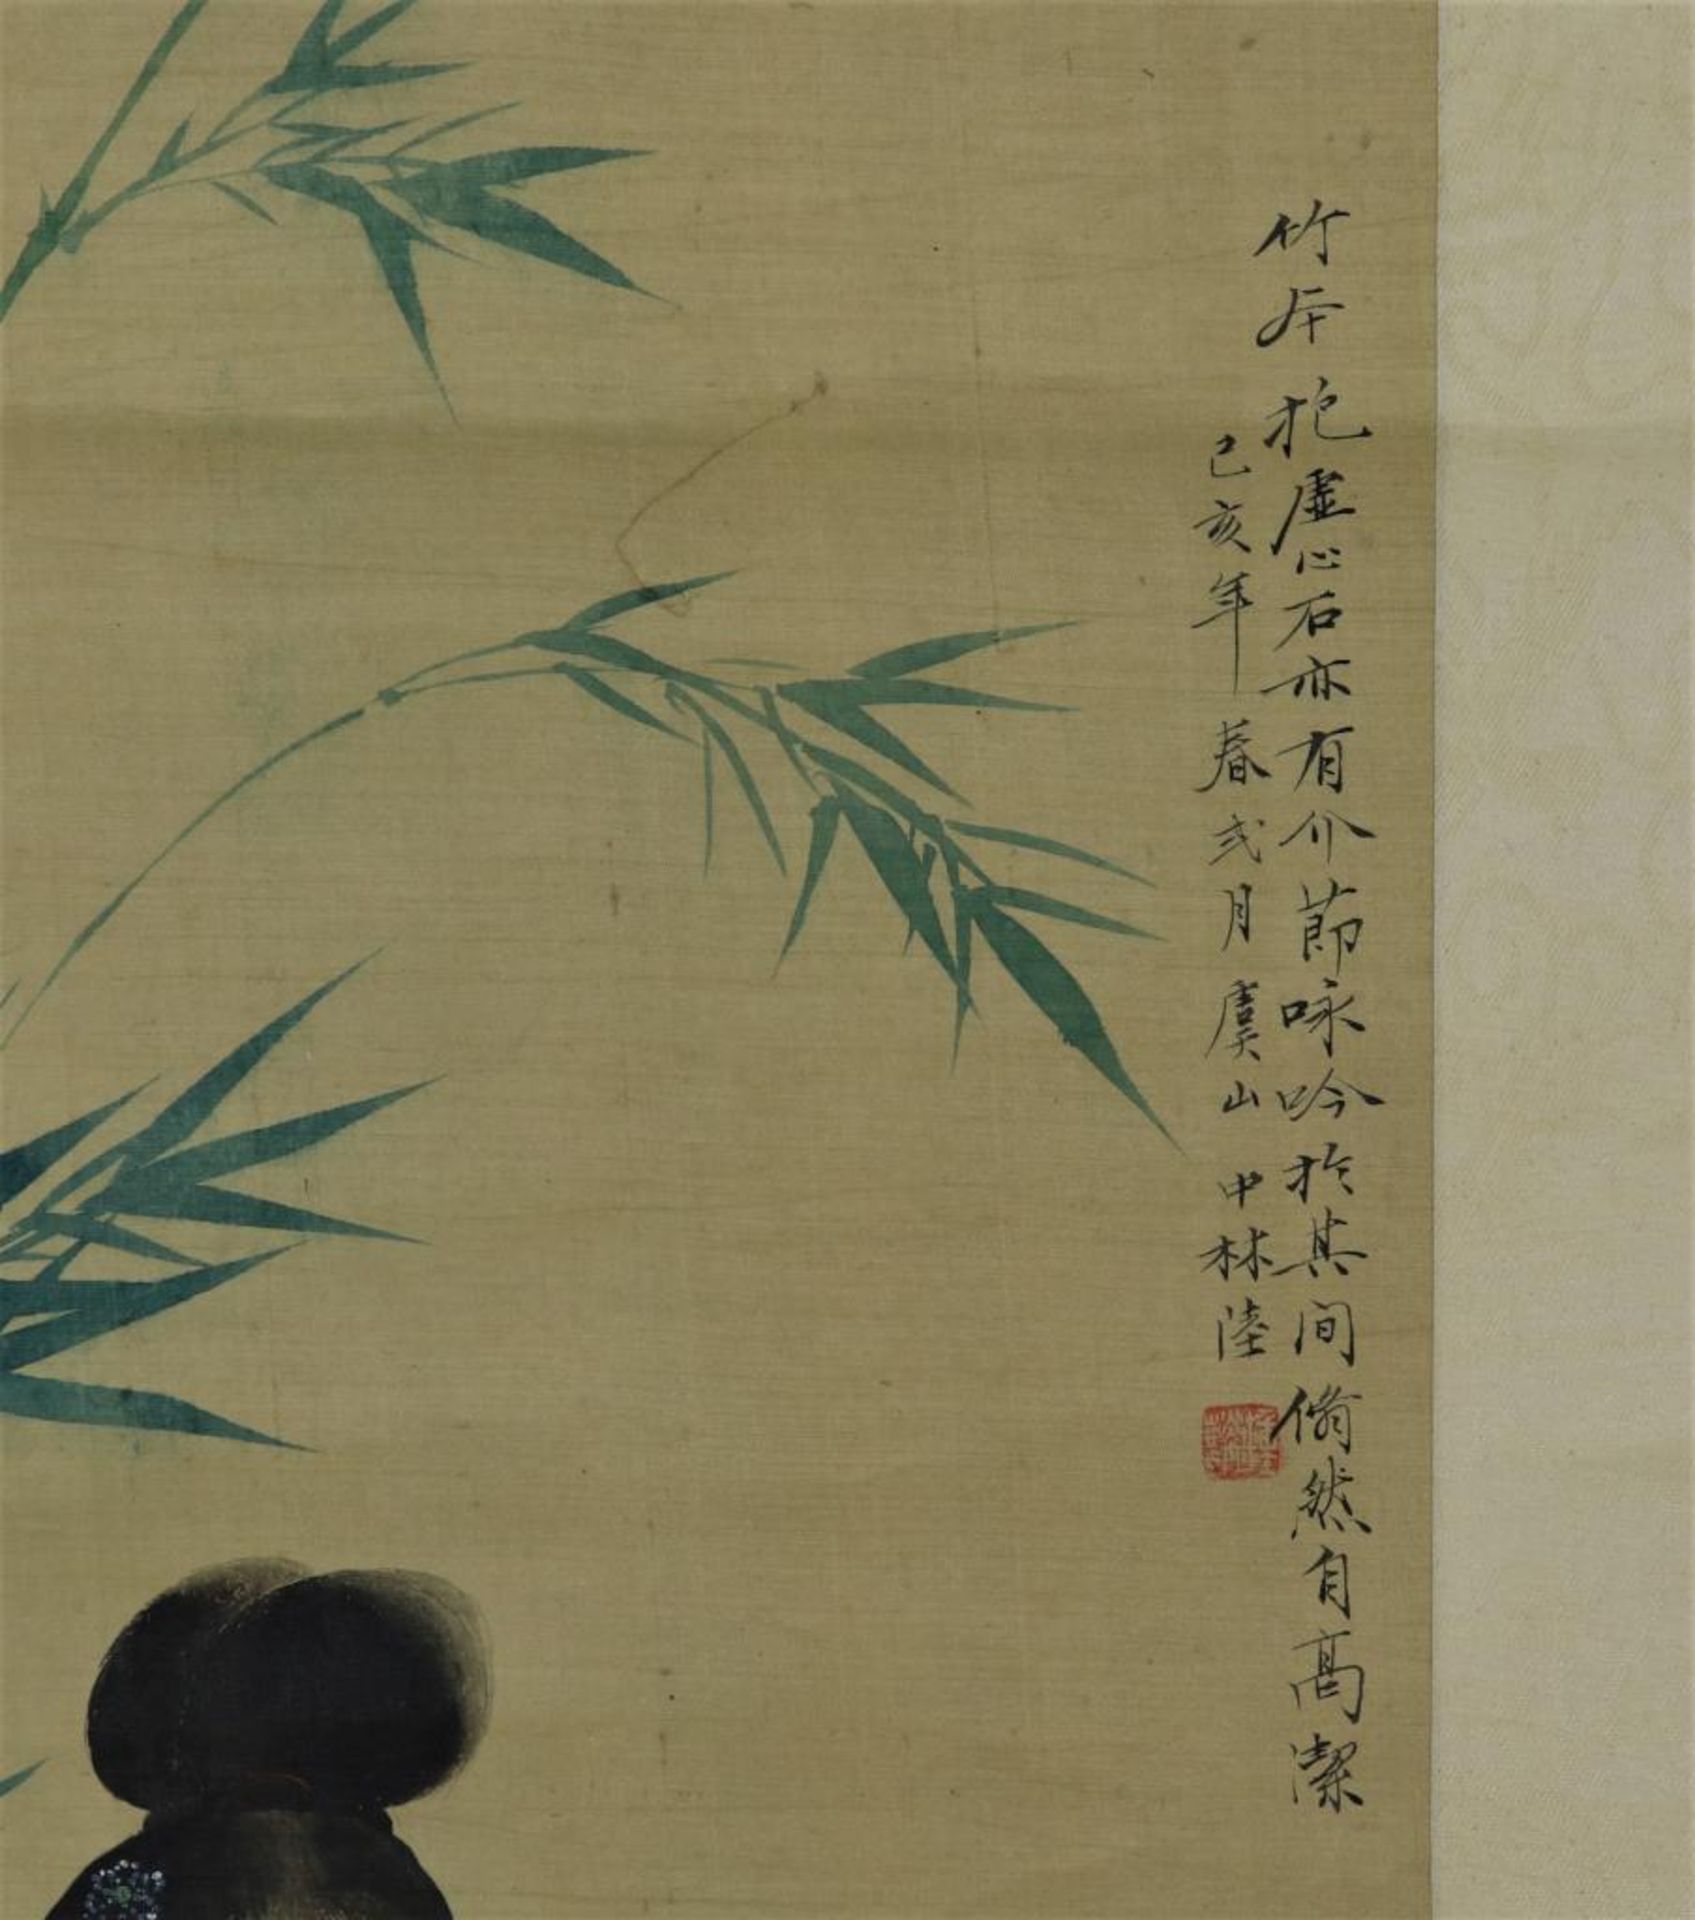 竹本抱虛心石亦有介節咏吟於其间翛然自高潔
己亥年春弍月虞山中林陸